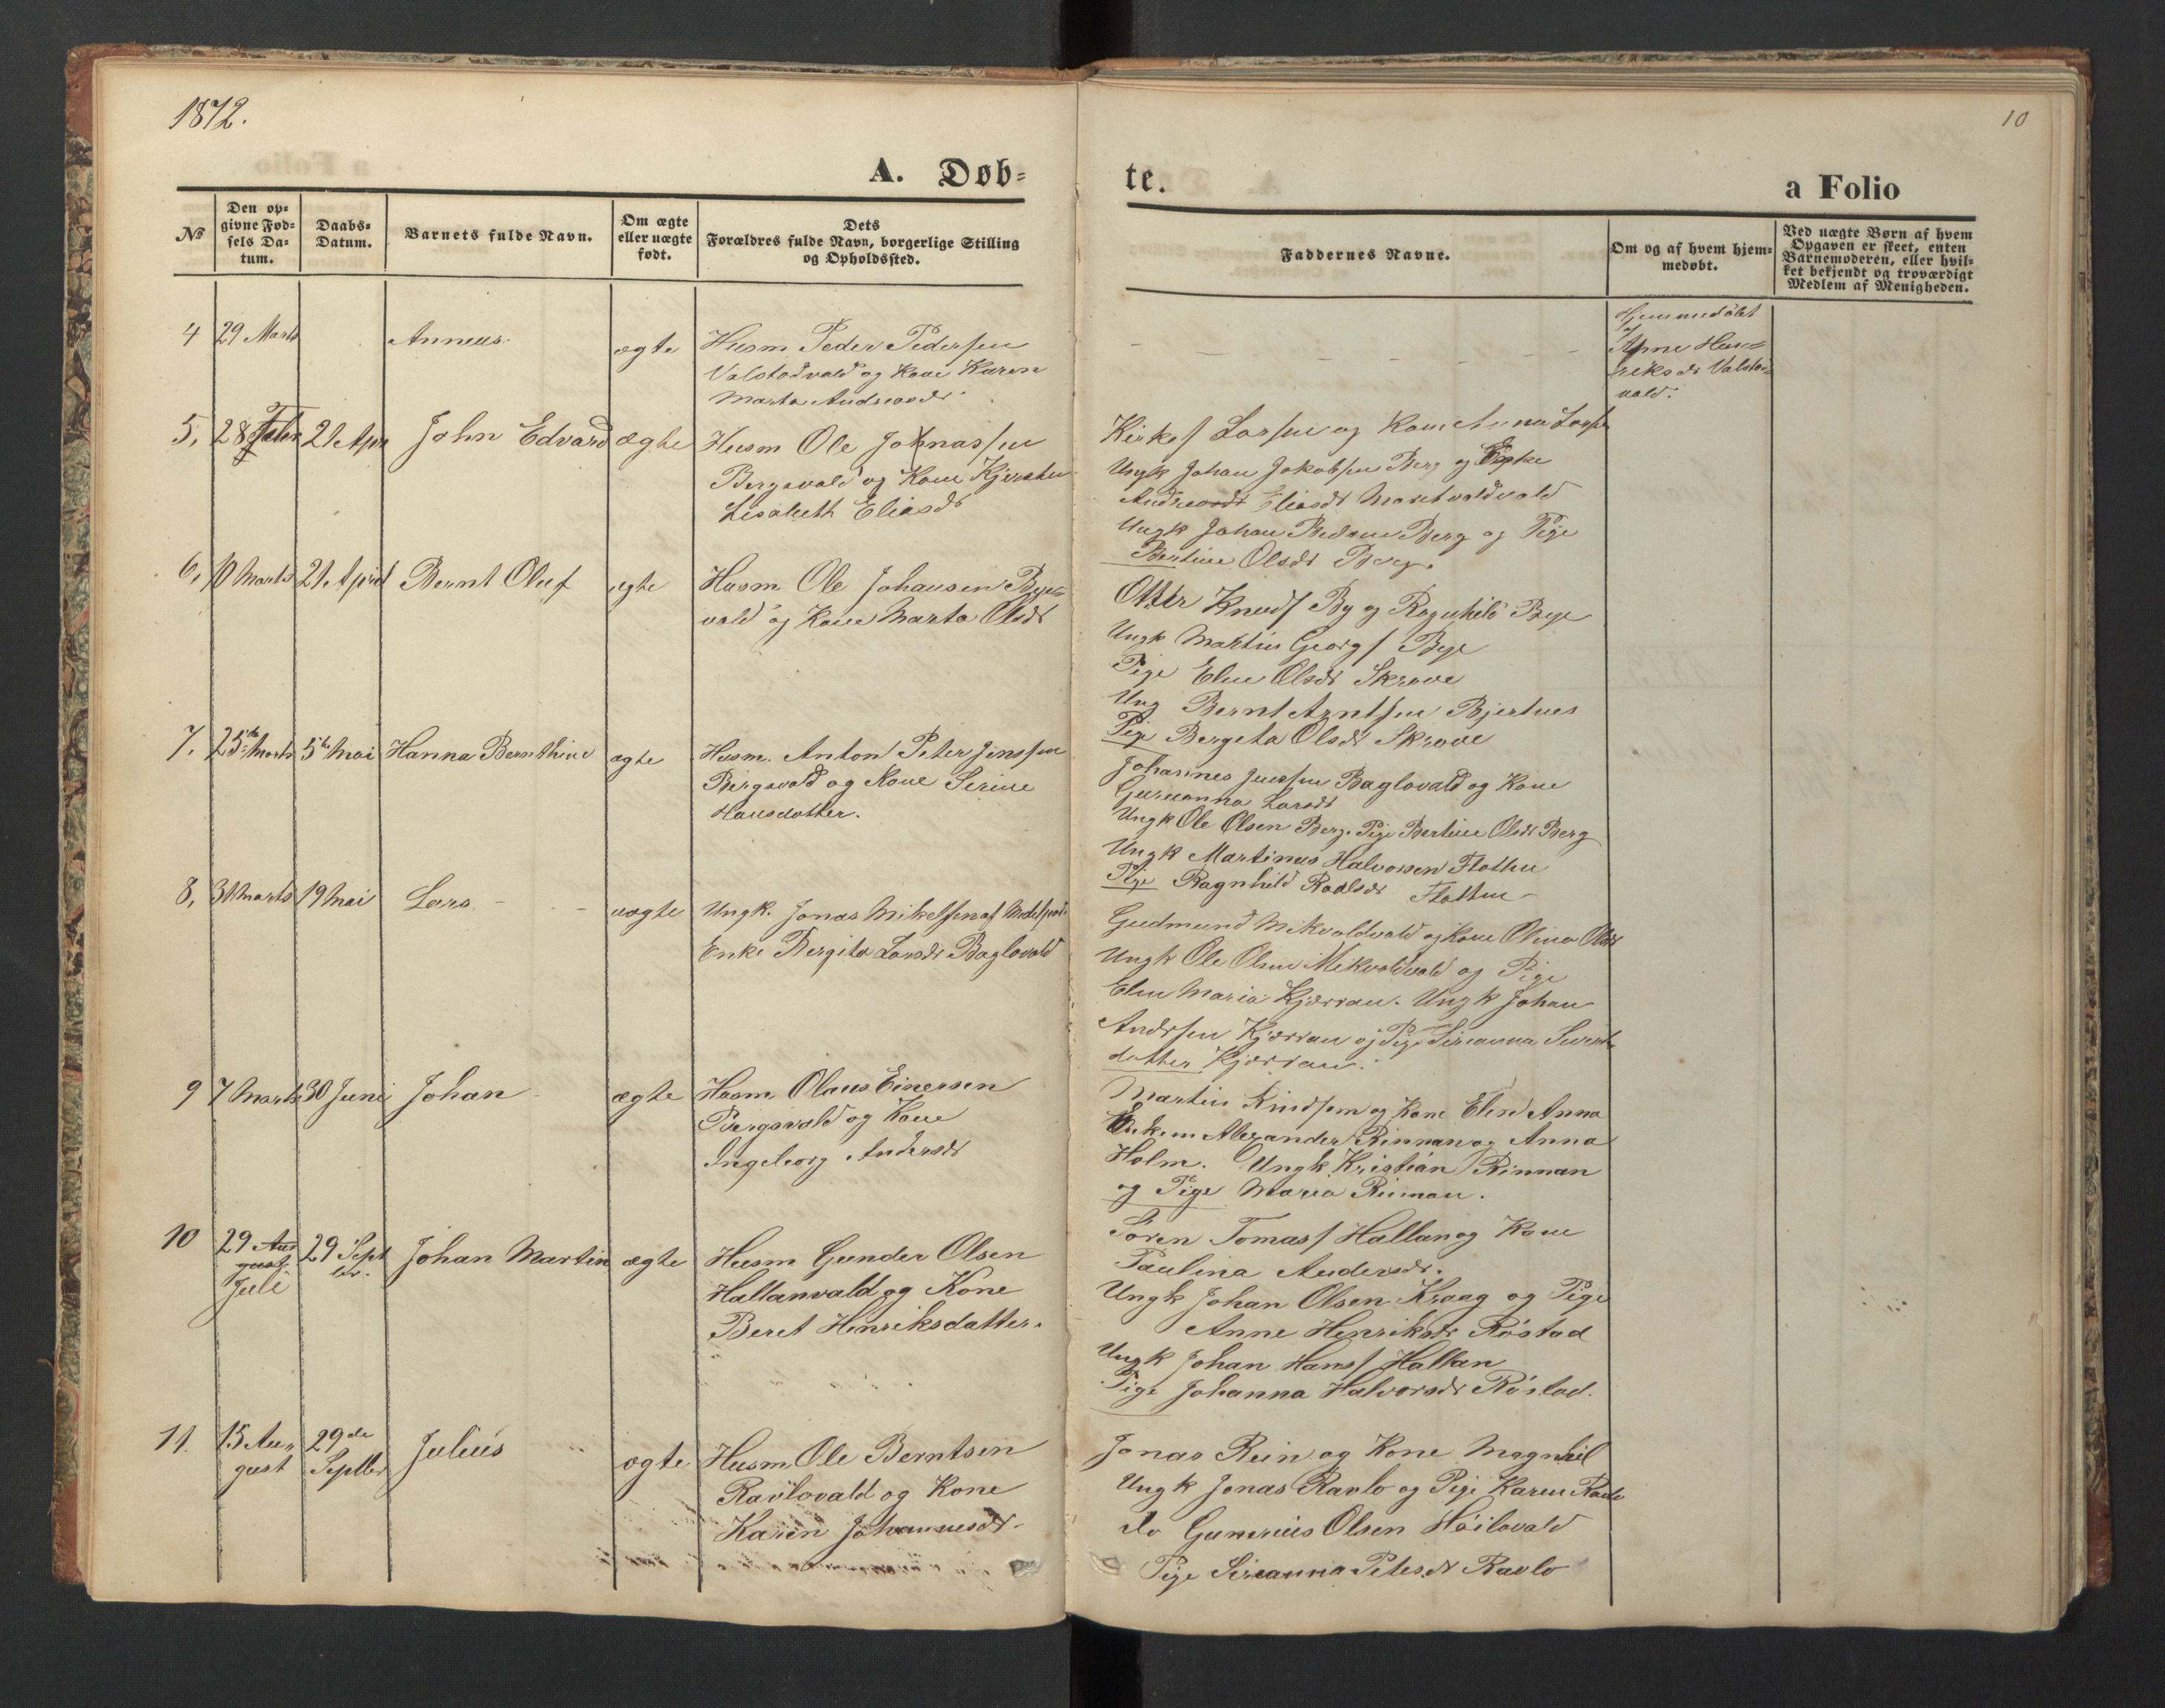 1872.
10
A. Døb=
te.
a Folio
No
Den op=
givne Fød=
sels Da=
tum.
Daabs=
Datum.
Barnets fulde Navn.
Om ægte
eller uægte
født.
Dets
Forældres fulde Navn, borgerlige Stilling
og Opholdssted.
Faddernes Navne.
Om og af hvem hjem=
medøbt.
Ved uægte Børn af hvem
Opgaven er skeet, enten
Barnemoderen, eller hvil=
ket bekjendt og troværdigt
Medlem af Menigheden.
4
29 Marts
Anneus
ægte
Husm Peder Pedersen
Valstadvald og Kone Karen
Marta Andreasdr
Hjemmedøbt
af
Anne Hen=
riksdr Valsta=
vald.
5,
28 Febr
21 Apr
John Edvard
ægte
Husm Ole Johnassen
Bergsvald og Kone Kjersten
Lisabeth Eliasdr
Kirkes Larsen og Kone Anna Lars
Ungk Johan Jakobsen Berg og Enke
Andreasdr Eliasdr Maritvaldvald
Ungk Johan Berg og Pige
Bertine Olsdr Berg.
6,
10 Marts
21 April
Bernt Oluf
ægte
Husm Ole Johansen Bye=
vald og Kone Marta Olsdr
Otter Knuds By og Ragnhild Bye
Ungk Martin Georgs Bye
Pige Elen Olsdr Skrove
Ung Bernt Arntsen Bjertnes
Pige Bergeta Olsdr Skrove
7,
25de Marts
5te Mai
Hanna Bernthine
ægte
Husm. Anton Peter Jenssen
Bergsvald og Kone Serine
Hansdatter.
Johannes Jenssen Baglovald og Kone
Gurianna Larsdr
Ungk Ole Olsen Berg. Pige Bertine Olsdr Berg
Ungk Martinus Halvorsen Flotten
Pige Ragnhild Roalsdr Flotten
8,
31 Marts
19 Mai
Lars
uægte
Ungk. Jonas Mikelsen af Medelpad.
Enke Bergita Larsdr Baglovald
Gudmund Mikvoldvald og Kone Olina Olsdr
Ungk Ole Olsen Mikvoldvald og Pige
Elen Maria Kjærran. Ungk Johan
Andrsen Kjærran og Pige Sirianna Sivert
datter Kjærran.
9
7 Marts
30 Juni
Johan
ægte
Husm Olaus Einersen
Bergsvald og Kone
Ingeborg Andersdr
Martin Knudsen og Kone Elen Anna
Enkem Alexander Rinnan og Anna
Holm. Ungk Kristian Rinnan
og Pige Maria Rinnan.
10
29 Au
gust
Juli
29 Sept
br.
Johan Martin
ægte
Husm Gunder Olsen
Hallanvald og Kone
Beret Henriksdatter.
Sören Tomass Hallan og Kone
Paulina Andersdr.
Ungk Johan Olsen Kraag og Pige
Anne Henriksdr Röstad
Ungk Johan Hanss Hallan
Pige Johanna Halvorsdr Röstad.
11.
15 Au=
gust
29de
Septbr
Julius
ægte
Husm Ole Berntsen
Ravlovald og Kone
Karen Johannesdr
Jonas Rein og Kone Magnhil
Ungk Jonas Ravlo og Pige Karen Ravlo
do Gunerius Olsen Höilovald
Pige Sirianna Petersdr Ravlo